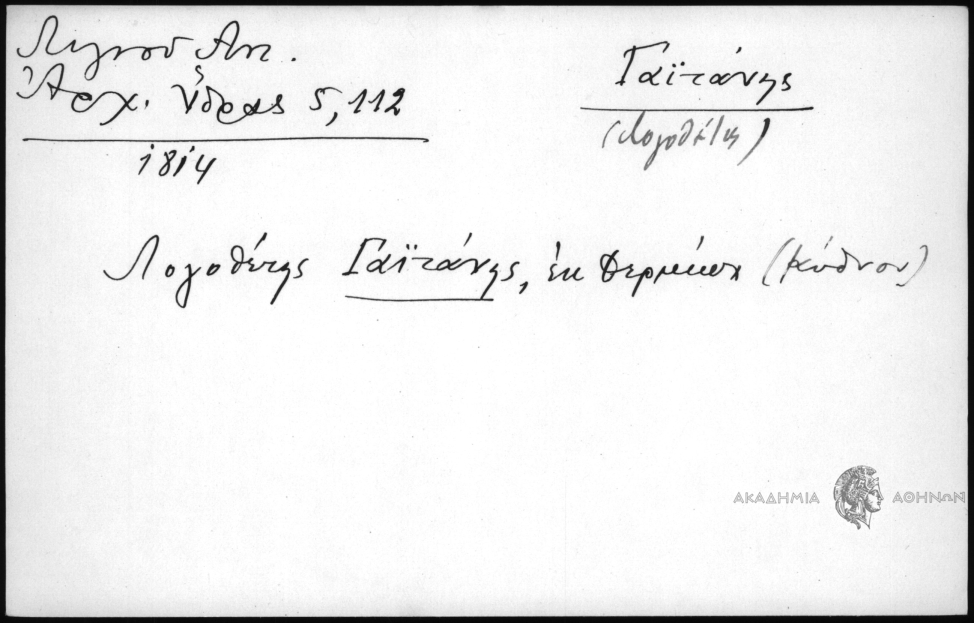 Λιγνού Αντ.
Ἀρχ. Ὕδρας 5, 112
1814
Γαϊτάνης
(Λογοθέτης)
Λογοθέτης Γαϊτάνης, ἐκ Θερμίων (Κύθνου)
ΑΚΑΔΗΜΙΑ ΑΘΗΝΩΝ